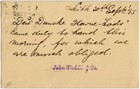 Leith 30th Septr 85
The Danske Havne Lods
came duly to hand this
morning, for which we
are much obliged.
John & Co.